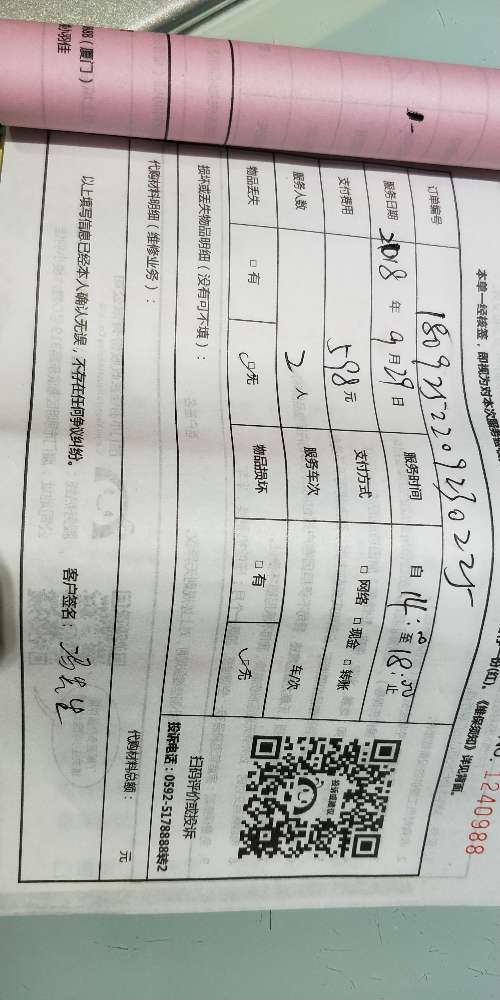 888（厦门）
本单一经核签，即视为对本次服务
《维保须知》详见背面。
1240988
订单编号 1809252209230225
服务日期 2018 年 9 月 29 日 服务时间 自 14:00 至 18:00 止
支付费用 598 元 支付方式 □ 网络 □ 现金 □ 转账
服务人数 2 人 服务车次 车/次
物品丢失 □ 有 □ 无 物品损坏 □ 有 无
损坏或丢失物品明细（没有可不填）：
投诉或建议
扫码评价或投诉
投诉电话：0592-5178888转2
代购材料明细（维修业务）：
代购材料总额： 元
以上填写信息已经本人确认无误，不存在任何争议纠纷。 客户签名：